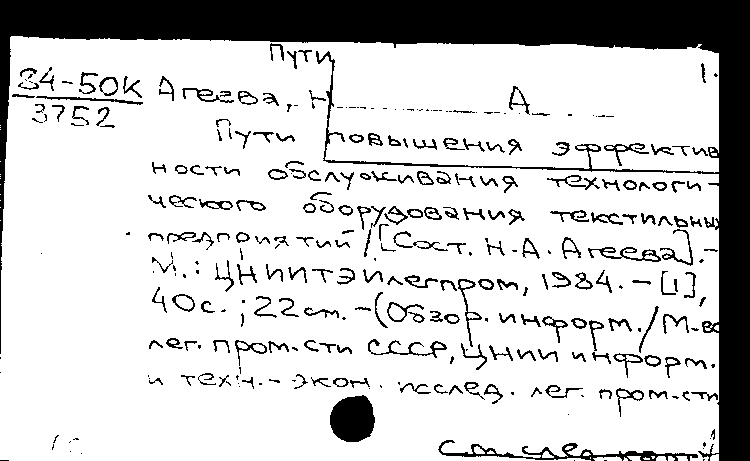 Пути
1.
84-50К Агеева, Н
3752
А
Пути повышения эффектив
ности обслуживания технологи-
ческого оборудования текстильных
предприятий / [Сост. Н.А. Агеева]. -
М.: ЦНИИТЭИлегпром, 1984. - [1],
40с.; 22см. - (Обзор. информ. / М-во
лег. пром-сти СССР, ЦНИИ информ.
и техн.-экон. исслед. лег. пром-сти
См. след. карт.